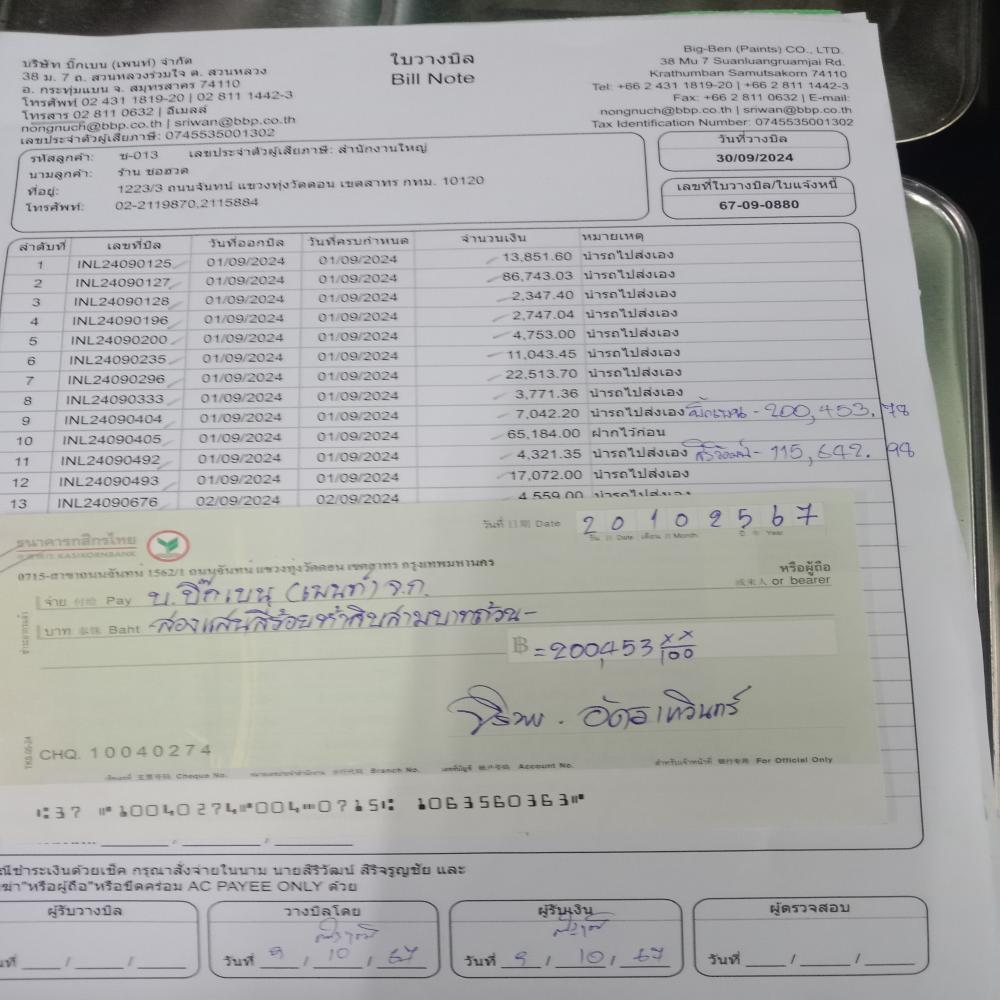 บริษัท บิ๊กเบน (เพนท์) จำกัด
38 ม. 7 ถ. สวนหลวงร่วมใจ ต. สวนหลวง
อ. กระทุ่มแบน จ. สมุทรสาคร 74110
โทรศัพท์ 02 431 1819-20 | 02 811 1442-3
โทรสาร 02 811 0632 | อีเมลล์
nongnuch@bbp.co.th | sriwan@bbp.co.th
เลขประจำตัวผู้เสียภาษี: 0745535001302
ใบวางบิล
Bill Note
Big-Ben (Paints) CO., LTD.
38 Mu 7 Suanluangruamjai Rd.
Krathumban Samutsakorn 74110
Tel: +66 2 431 1819-20 | +66 2 811 1442-3
Fax: +66 2 811 0632 | E-mail:
nongnuch@bbp.co.th | sriwan@bbp.co.th
Tax Identification Number: 0745535001302
รหัสลูกค้า: ซ-013 เลขประจำตัวผู้เสียภาษี: สำนักงานใหญ่
นามลูกค้า: ร้าน ซอฮวด
ที่อยู่: 1223/3 ถนนจันทน์ แขวงทุ่งวัดดอน เขตสาทร กทม. 10120
โทรศัพท์: 02-2119870,2115884
วันที่วางบิล
30/09/2024
เลขที่ใบวางบิล/ใบแจ้งหนี้
67-09-0880
ลำดับที่ เลขที่บิล วันที่ออกบิล วันที่ครบกำหนด จำนวนเงิน หมายเหตุ
1 INL24090125 01/09/2024 01/09/2024 13,851.60 นำรถไปส่งเอง
2 INL24090127 01/09/2024 01/09/2024 86,743.03 นำรถไปส่งเอง
3 INL24090128 01/09/2024 01/09/2024 2,347.40 นำรถไปส่งเอง
4 INL24090196 01/09/2024 01/09/2024 2,747.04 นำรถไปส่งเอง
5 INL24090200 01/09/2024 01/09/2024 4,753.00 นำรถไปส่งเอง
6 INL24090235 01/09/2024 01/09/2024 11,043.45 นำรถไปส่งเอง
7 INL24090296 01/09/2024 01/09/2024 22,513.70 นำรถไปส่งเอง
8 INL24090333 01/09/2024 01/09/2024 3,771.36 นำรถไปส่งเอง
9 INL24090404 01/09/2024 01/09/2024 7,042.20 นำรถไปส่งเอง บิ๊กเบน - 200,453.78
10 INL24090405 01/09/2024 01/09/2024 65,184.00 ฝากไว้ก่อน
11 INL24090492 01/09/2024 01/09/2024 4,321.35 นำรถไปส่งเอง สิริวัฒน์ - 115,642.98
12 INL24090493 01/09/2024 01/09/2024 17,072.00 นำรถไปส่งเอง
13 INL24090676 02/09/2024 02/09/2024 4,559.00 นำรถไปส่งเอง
ธนาคารกสิกรไทย
KASIKORNBANK
วันที่ 日期 Date 20102567
วัน 日 Date เดือน 月 Month ปี 年 Year
0715-สาขาถนนจันทน์ 1562/1 ถนนจันทน์ แขวงทุ่งวัดดอน เขตสาทร กรุงเทพมหานคร
หรือผู้ถือ
或来人 or bearer
จ่าย 付给 Pay บ.บิ๊กเบน (เพนท์) จ.ก.
บาท Baht สองแสนสี่ร้อยห้าสิบสามบาทถ้วน-
฿ =200,453 xx/100
CHQ. 10040274
Cheque No. Branch No. Account No. สำหรับเจ้าหน้าที่ 银行专用 For Official Only
37 10040274 004 0715 1063560363
ณีชำระเงินด้วยเช็ค กรุณาสั่งจ่ายในนาม นายสิริวัฒน์ สิริจรูญชัย และ
ฆ่า"หรือผู้ถือ"หรือขีดคร่อม AC PAYEE ONLY ด้วย
ผู้รับวางบิล วางบิลโดย ผู้รับเงิน ผู้ตรวจสอบ
ที่ / / วันที่ 9 / 10 / 67 วันที่ 9 / 10 / 67 วันที่ / /